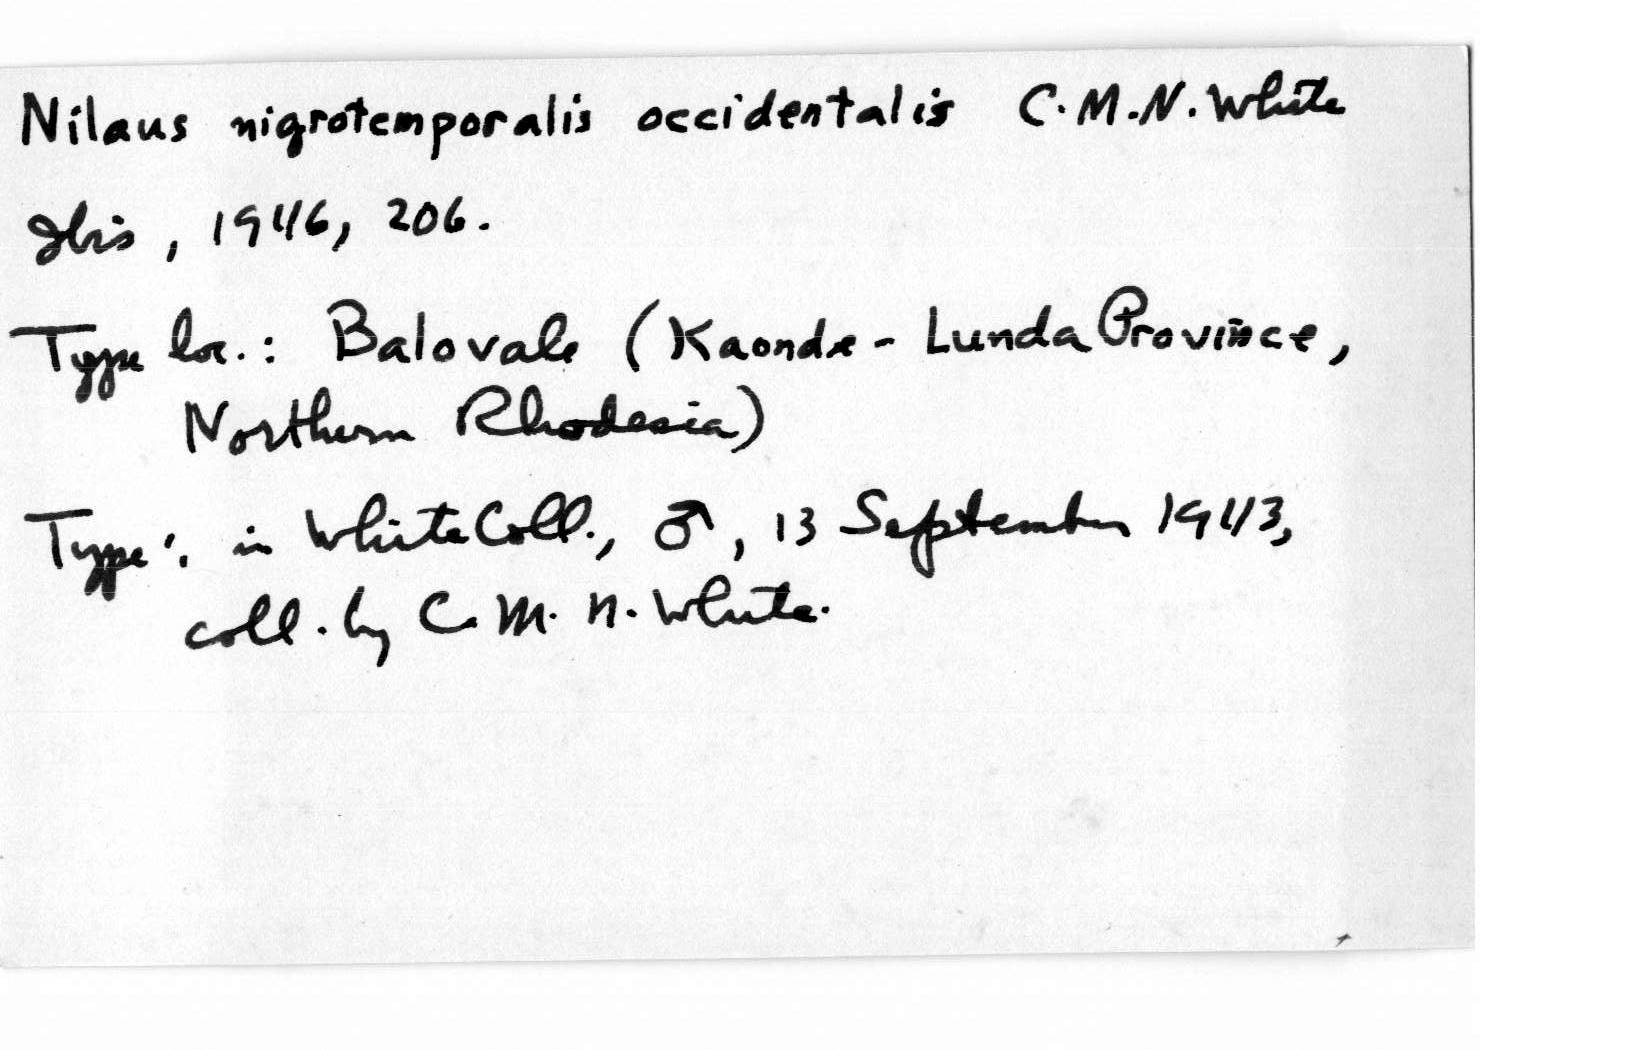 Nilaus nigrotemporalis occidentalis C.M.N. White
Ibis, 1946, 206.
Type loc.: Balovale (Kaonde-Lunda Province,
Northern Rhodesia)
Type: in White Coll., ♂, 13 September 1943,
coll. by C. M. N. White.